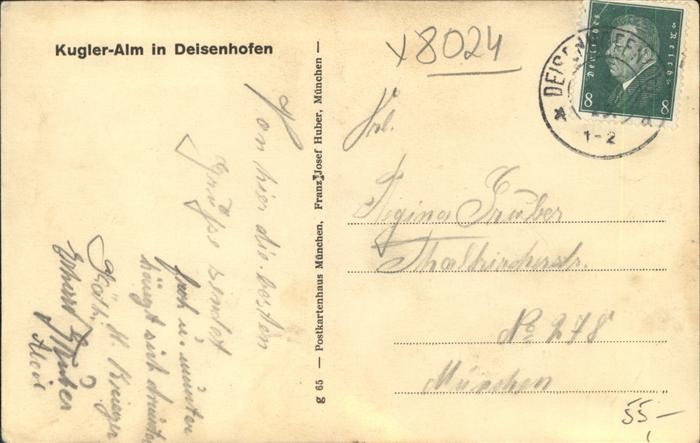 Kugler-Alm in Deisenhofen
x8024
Deutsches Reich
8 8
DEISENHOFEN
1-2
Von hier die besten
Grüße sendet
sich
Käth. M. Krieger
Gruber
g 65 — Postkartenhaus München, Franz Josef Huber, München —
Frl.
Regina Gruber
Thalkirchnerstr.
No 278
München
55-